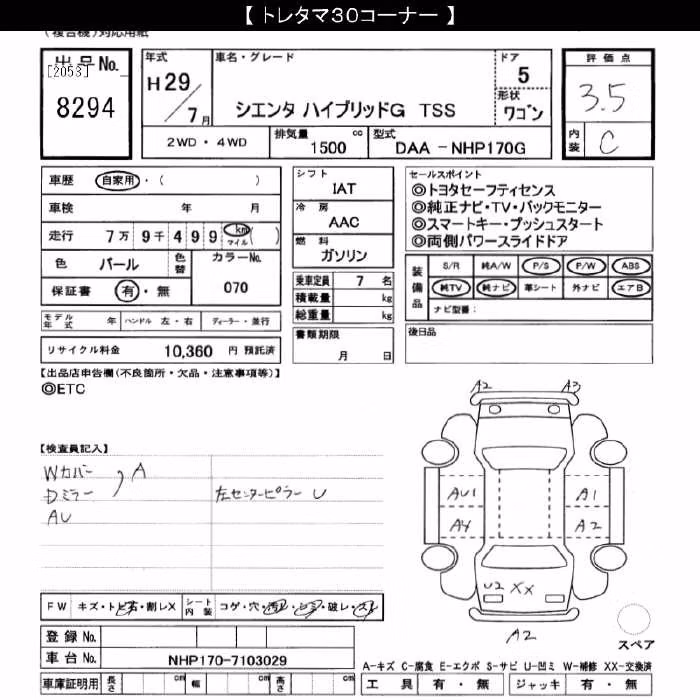 【 トレタマ30コーナー 】
(複合機)対応用紙
出品No.
[2053]
8294
年式
H29/7月
車名・グレード
シエンタ ハイブリッドG TSS
ドア
5
形状
ワゴン
評価点
3.5
内装
C
2WD・4WD
排気量
1500 cc
型式
DAA - NHP170G
車歴 自家用・( )
車検 年 月
走行 7万 9千 4 9 9 km マイル ( )
色 パール 色替 カラーNo.
070
保証書 有・無
シフト
IAT
冷房
AAC
燃料
ガソリン
乗車定員 7 名
積載量 kg
総重量 kg
セールスポイント
◎トヨタセーフティセンス
◎純正ナビ・TV・バックモニター
◎スマートキー・プッシュスタート
◎両側パワースライドドア
装備品
S/R 純A/W P/S P/W ABS
純TV 純ナビ 革シート 外ナビ エアB
ナビ型番:
モデル年式 年 ハンドル 左・右 ディーラー・並行
書類期限
月 日
後日品
リサイクル料金 10,360 円 預託済
【出品店申告欄(不良箇所・欠品・注意事項等)】
◎ETC
【検査員記入】
Wカバー , A
Dミラー
AU
左センターピラー U
A2 A3
AU1 A1
A4 A2
U2 XX
A2
スペア
FW キズ・トビ石・割レX シート内装 コゲ・穴・汚レ・シミ・破レ・スレ
登録No.
車台No. NHP170-7103029
A-キズ C-腐食 E-エクボ S-サビ U-凹ミ W-補修 XX-交換済
車庫証明用 長さ cm 幅 cm 高さ cm
工具 有・無 ジャッキ 有・無